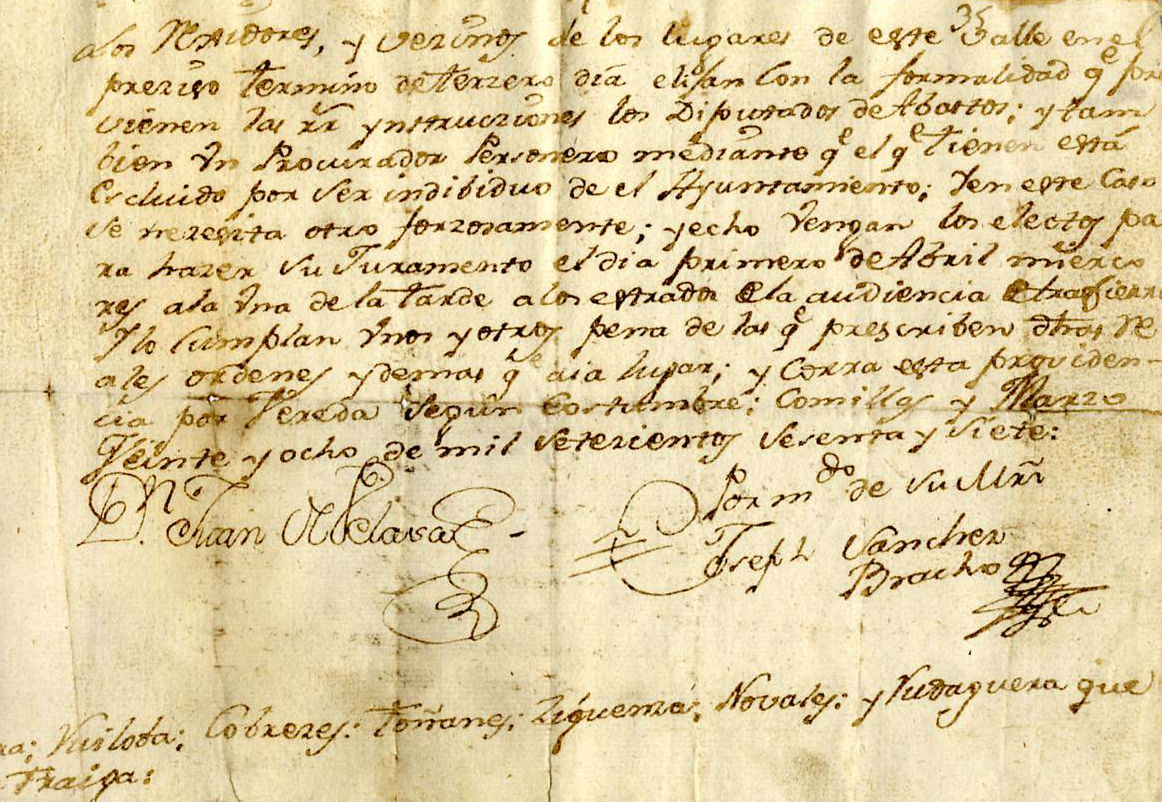 35
a los Rexidores, y vezinos de los lugares de este Valle en el
preziso termino de terzero dia elijan con la formalidad qe pre
vienen las rr ynstruziones los Diputados de Abastos; y tam
bien Vn Procurador Personero mediante qe el qe tienen está
Escluido por ser indibiduo de el Ayuntamiento; Y en este Caso
se nezesita otro forzosamente; y echo Vengan los electos pa
ra hazer su Juramento el dia primero de Abril mierco
res a la Vna de la tarde a los estrados de la audiencia
Y lo Cumplan Vnos y otros pena de las qe prescriben dhas Re
ales ordenes y demas qe aia lugar; y Corra esta providen-
cia por Vereda segun Costumbre; Comillas y Marzo
Veinte y ocho de mil setezientos sesenta y siete:
Dn Juan
Por mdo de su Mrd
Joseph Sanchez
Bracho
Ruiloba; Cobrezes: Toñanes; Ziguenza; Novales: y Rudaguera que
traiga: